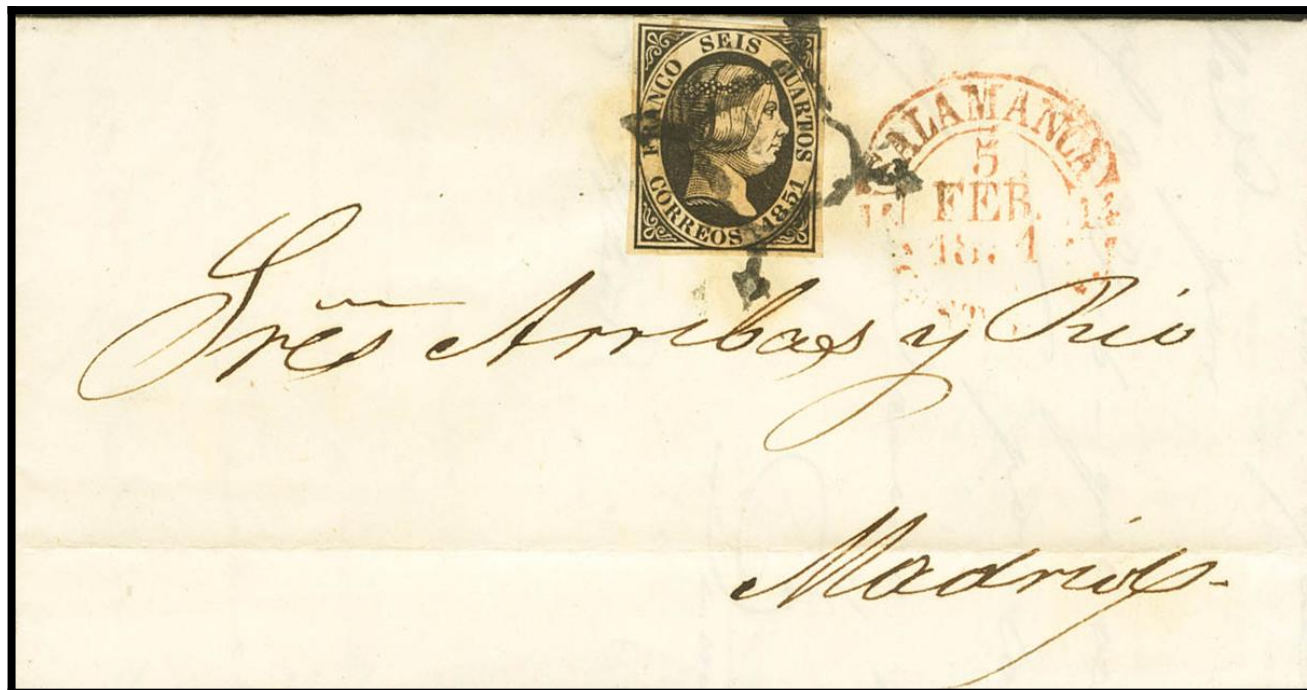 FRANCO SEIS CUARTOS
CORREOS 1851
SALAMANCA
5
FEB.
1851
Sres Arribas y Rio
Madrid.